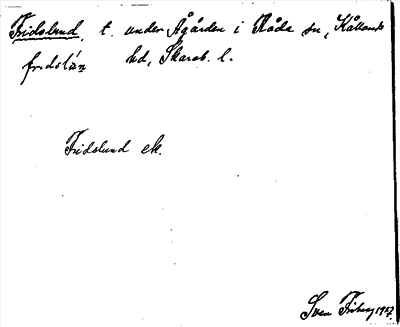 Fridslund, t. under Ågården i Råda sn, Kållands
fridslún hd, Skarab. l.
Fridslund ek.
Sven Friberg 1957.